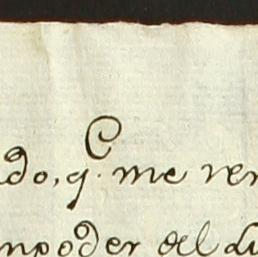 do, q. me ven
npoder del du